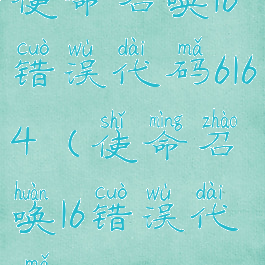 使命召唤16
cuò wù dài mǎ
错误代码616
shǐ mìng zhào
4（使命召
huàn cuò wù dài
唤16错误代
mǎ